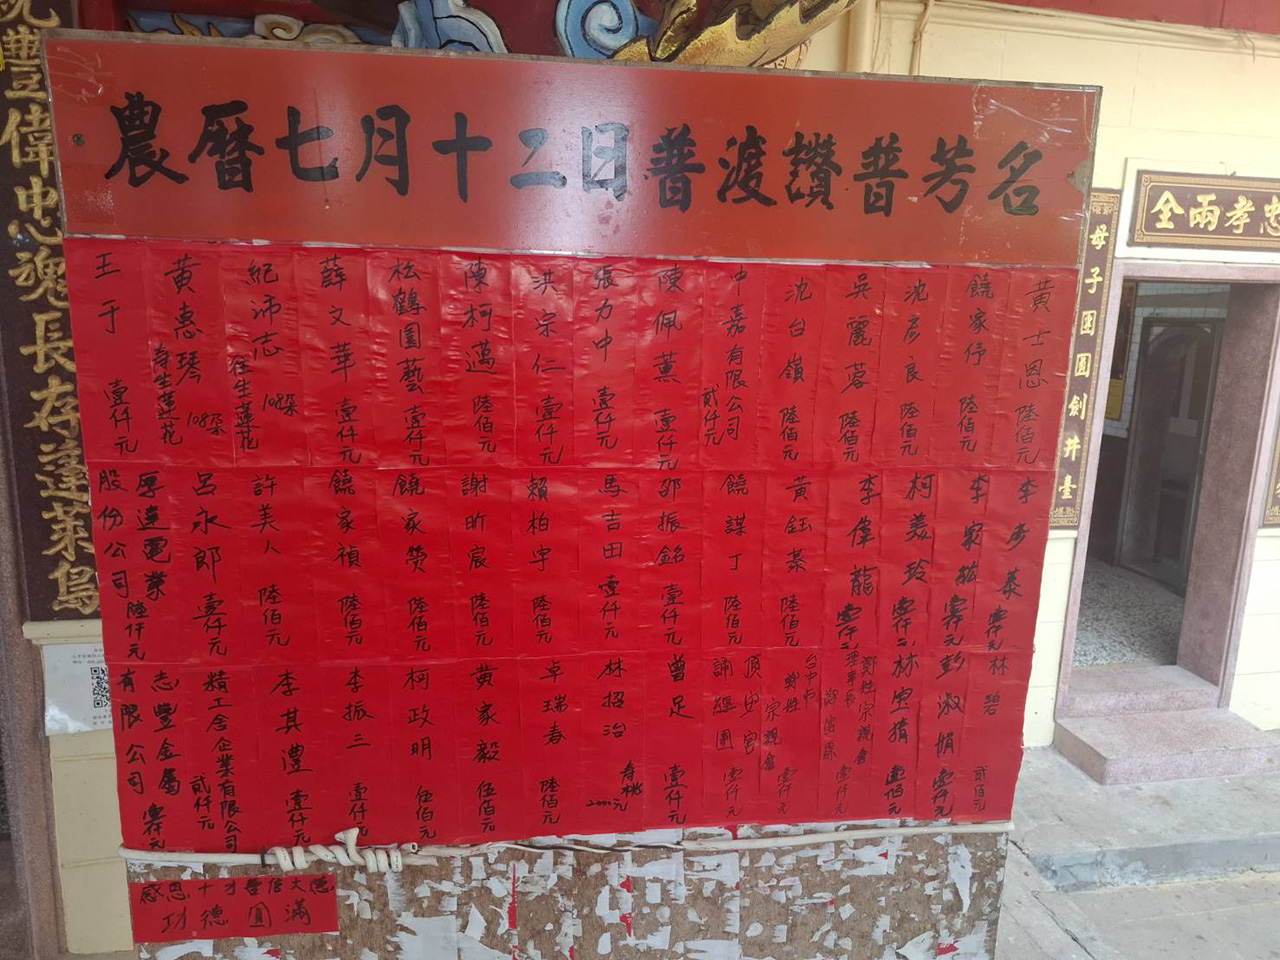 農曆七月十二日普渡讚普芳名
黃士恩 陸佰元
饒家伃 陸佰元
沈彥良 陸佰元
吳麗蓉 陸佰元
沈台嶺 陸佰元
中嘉有限公司 貳仟元
陳佩薰 壹仟元
張力中 壹仟元
洪宗仁 壹仟元
陳柯邁 陸佰元
松鶴園藝 壹仟元
薛文華 壹仟元
紀沛志 往生蓮花 108朵
黃惠琴 壽生蓮花 108朵
王于 壹仟元
李彥蓁 壹仟元
李家紘 壹仟元
柯義玲 壹仟元
李偉龍 壹仟元
黃鈺蓁 陸佰元
饒謀丁 陸佰元
邵振銘 壹仟元
馬吉田 壹仟元
賴柏宇 陸佰元
謝昕宸 陸佰元
饒家贊 陸佰元
饒家禎 陸佰元
許美人 陸佰元
呂永郎 壹仟元
厚達電業股份公司 陸仟元
林碧 貳佰元
彭淑娟 壹仟元
林堅 壹佰元
鄭姓宗親會 理事長 壹仟元
台中市鄭姓宗親會 壹仟元
誦經團 壹仟元
曾足 壹仟元
林招治 壽桃 2000元
卓瑞春 陸佰元
黃家毅 伍佰元
柯政明 伍佰元
李振三 壹仟元
李其澧 壹仟元
精工舍企業有限公司 貳仟元
志豐金屬有限公司 壹仟元
感恩十方善信大德
功德圓滿
豐偉忠魂長存蓬萊島
母子團圓劍井臺
忠孝兩全